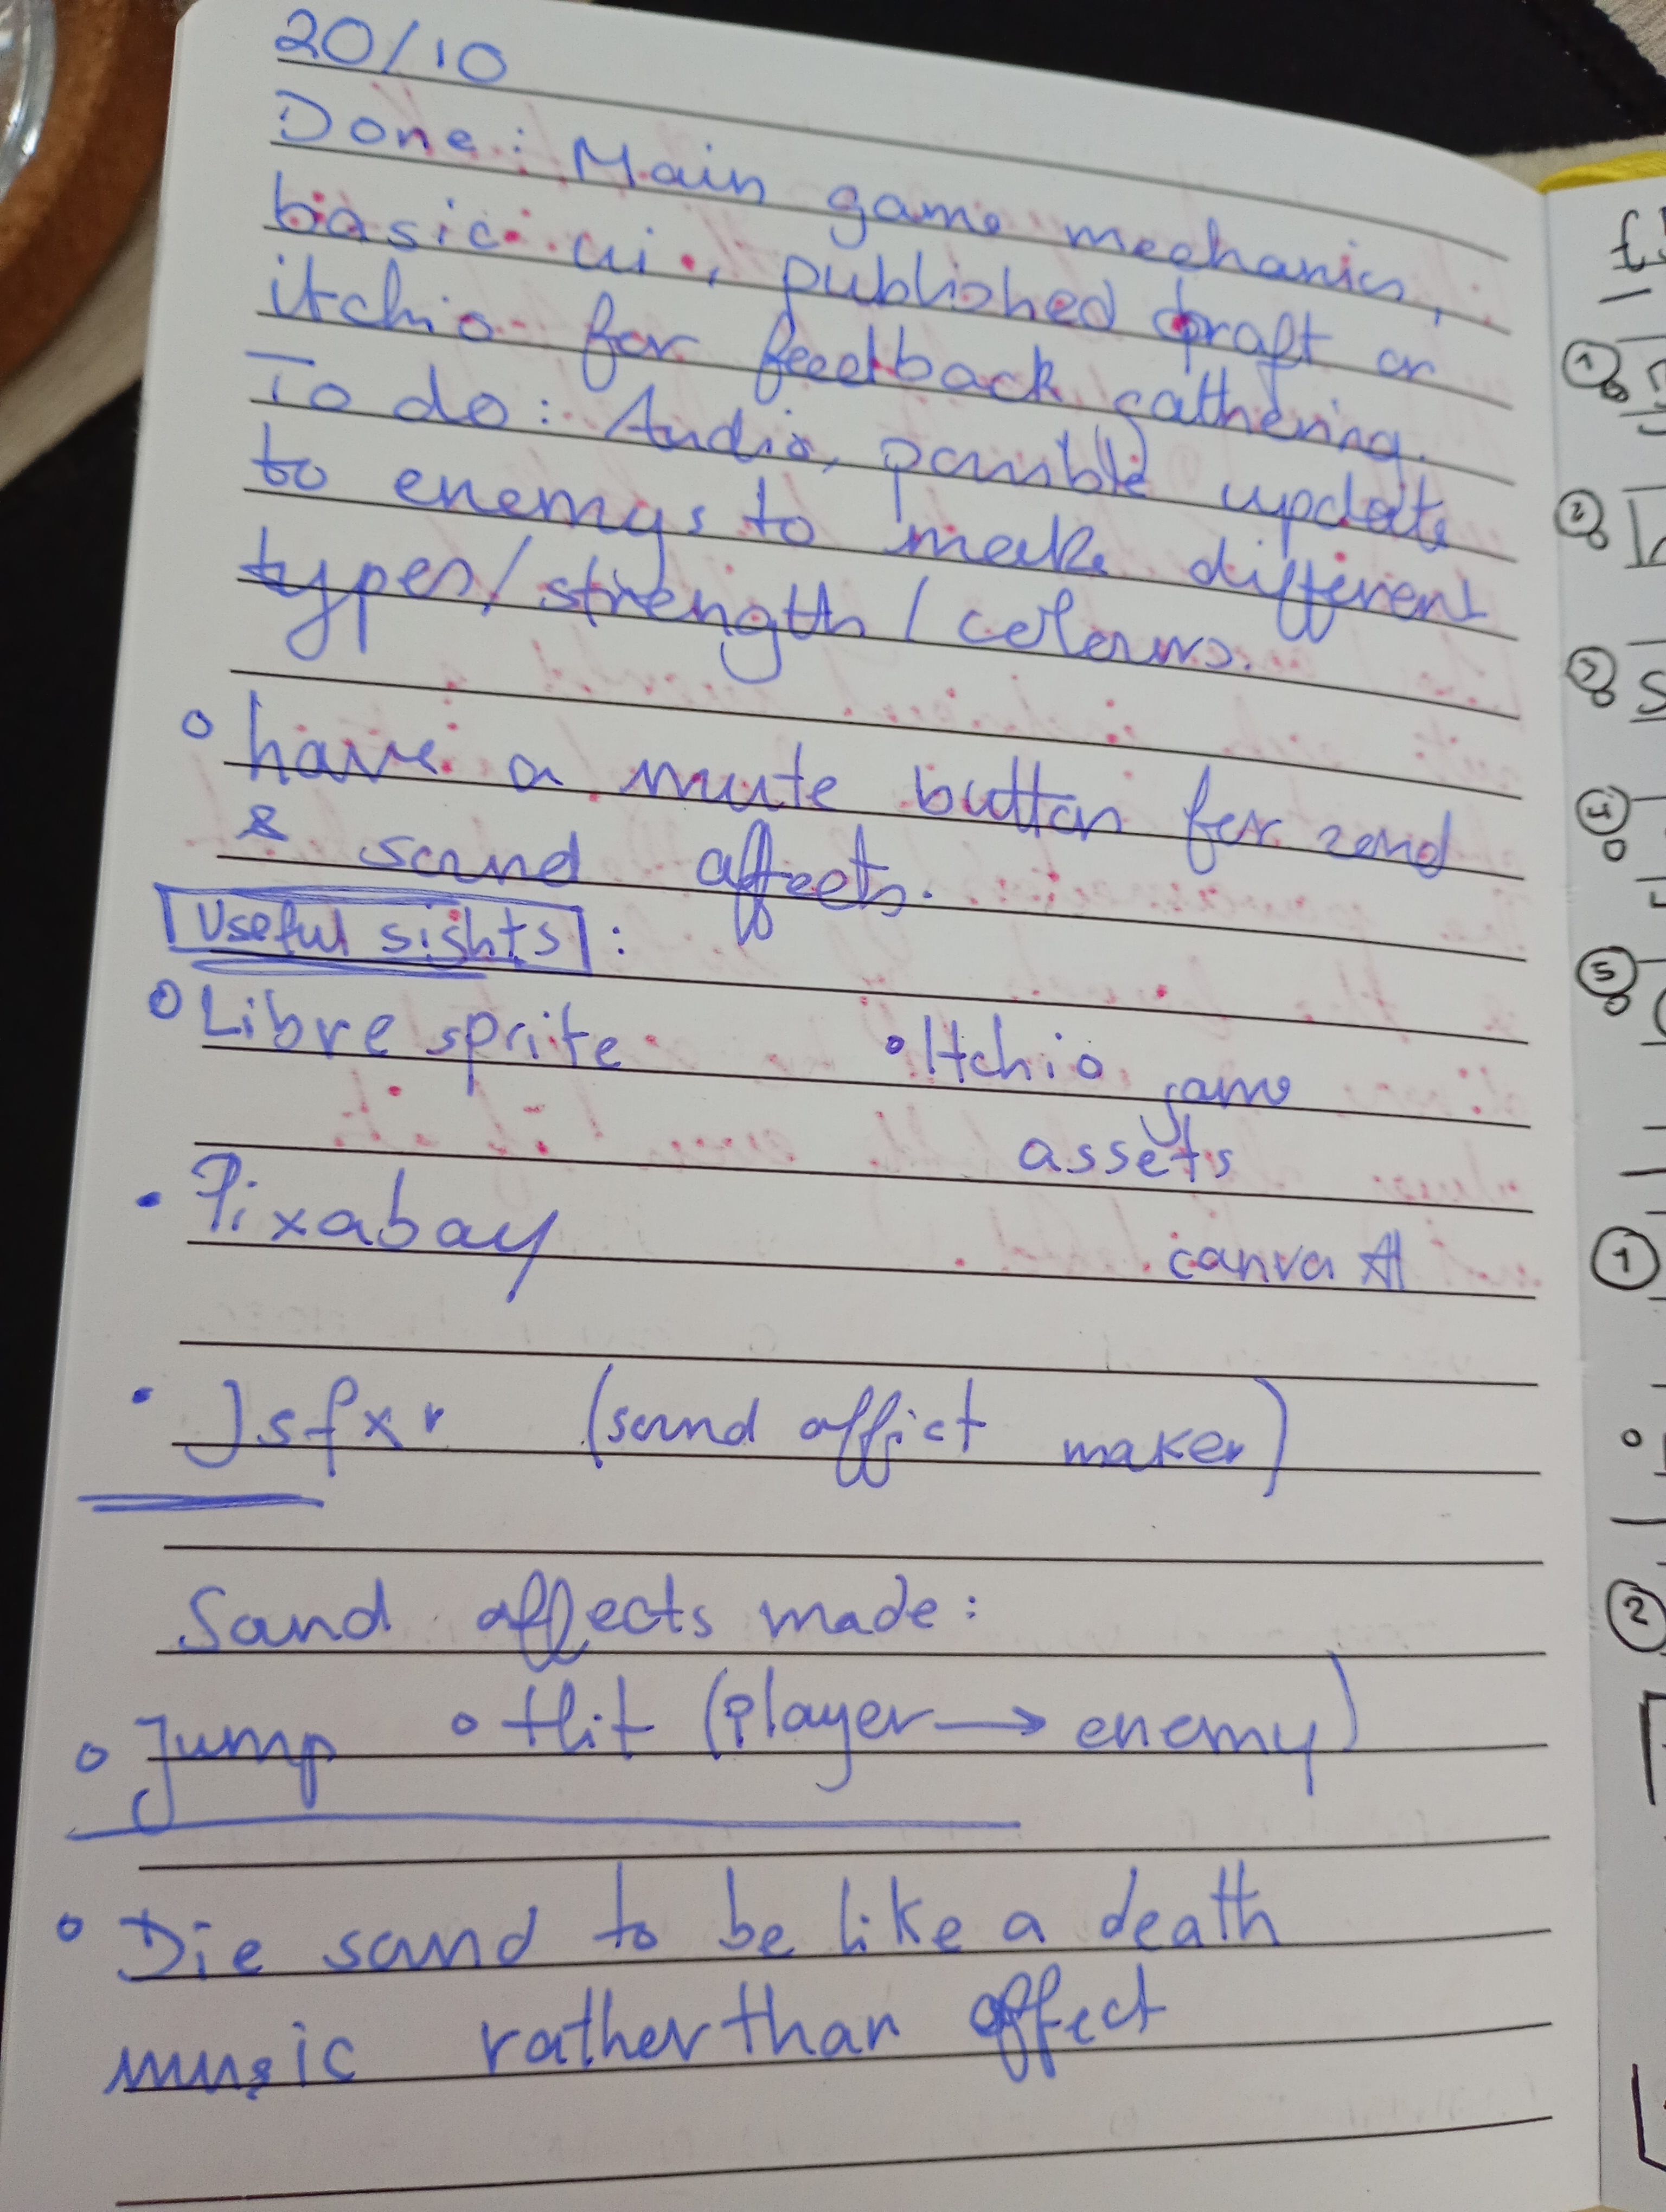 20/10
Done: Main game mechanics,
basic ui, published draft on
itchio for feedback gathering.
To do: Audio, possible update
to enemys to make different
types/strength/colours.
have a mute button for
& sound affects.
Useful sights:
Libre sprite
Itchio game
assets
Pixabay
canva AI
Jsfxr (sound affict maker)
Sound affects made:
Jump
Hit (Player → enemy)
Die sound to be like a death
music rather than affect
1
2
3
4
5
1
2